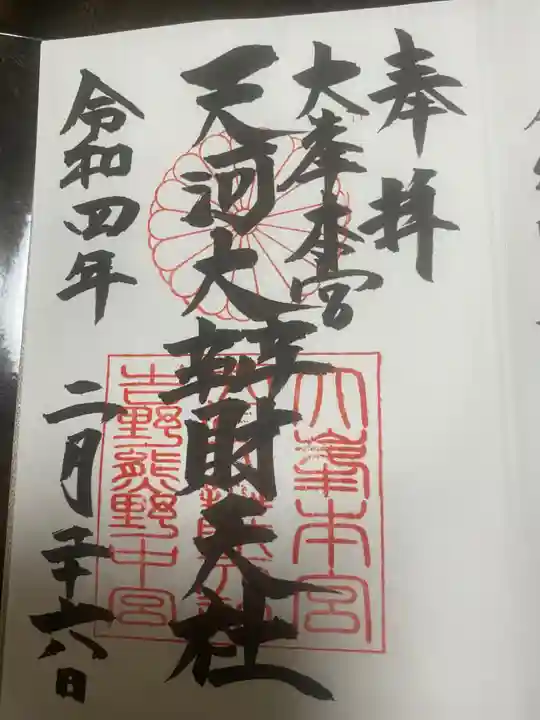 奉拝
大峯本宮
天河大辨財天社
令和四年 二月二十六日
大峯本宮
吉野熊野中宮